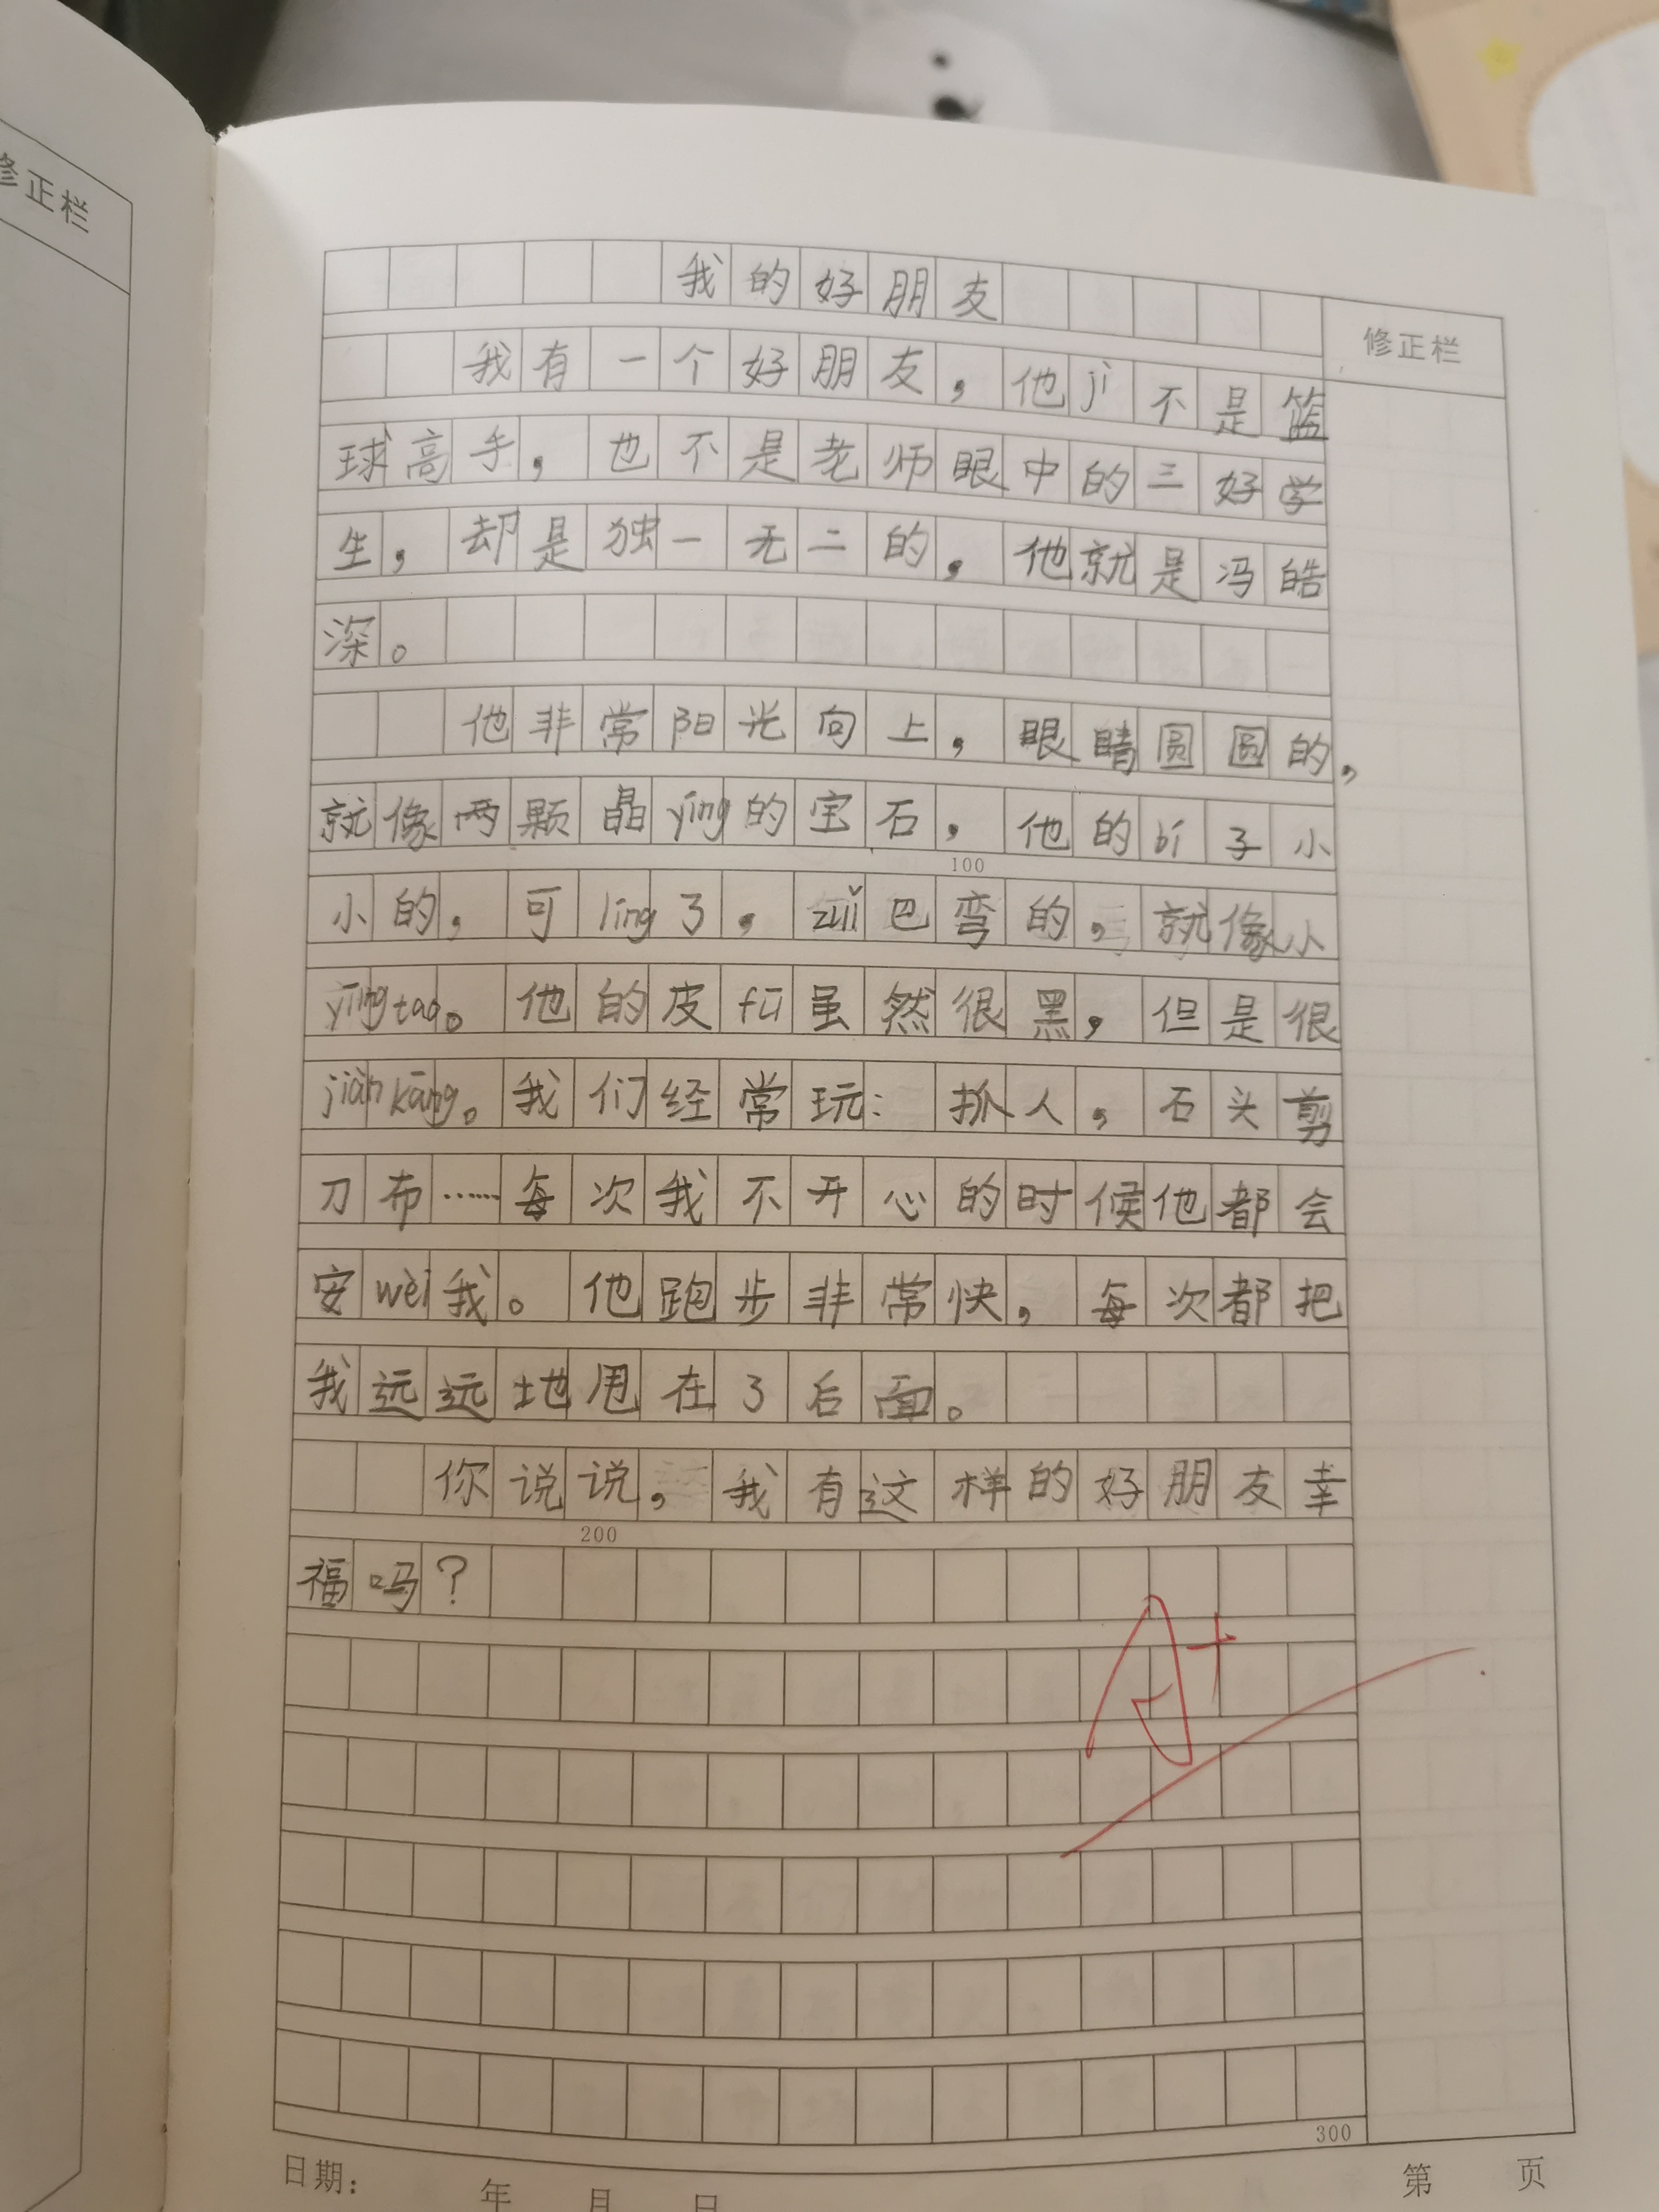 修正栏
我的好朋友
修正栏
我有一个好朋友，他jì不是篮
球高手，也不是老师眼中的三好学
生，却是独一无二的，他就是冯皓
深。
他非常阳光向上，眼睛圆圆的，
就像两颗晶yīng的宝石，他的bí子小
100
小的，可ling了，zuǐ巴弯的，就像小
yīngtao。他的皮fū虽然很黑，但是很
jiànkāng。我们经常玩：抓人，石头剪
刀布……每次我不开心的时候他都会
安wèi我。他跑步非常快，每次都把
我远远地甩在了后面。
你说说，我有这样的好朋友幸
200
福吗？
A+
300
日期： 年 月 日 第 页